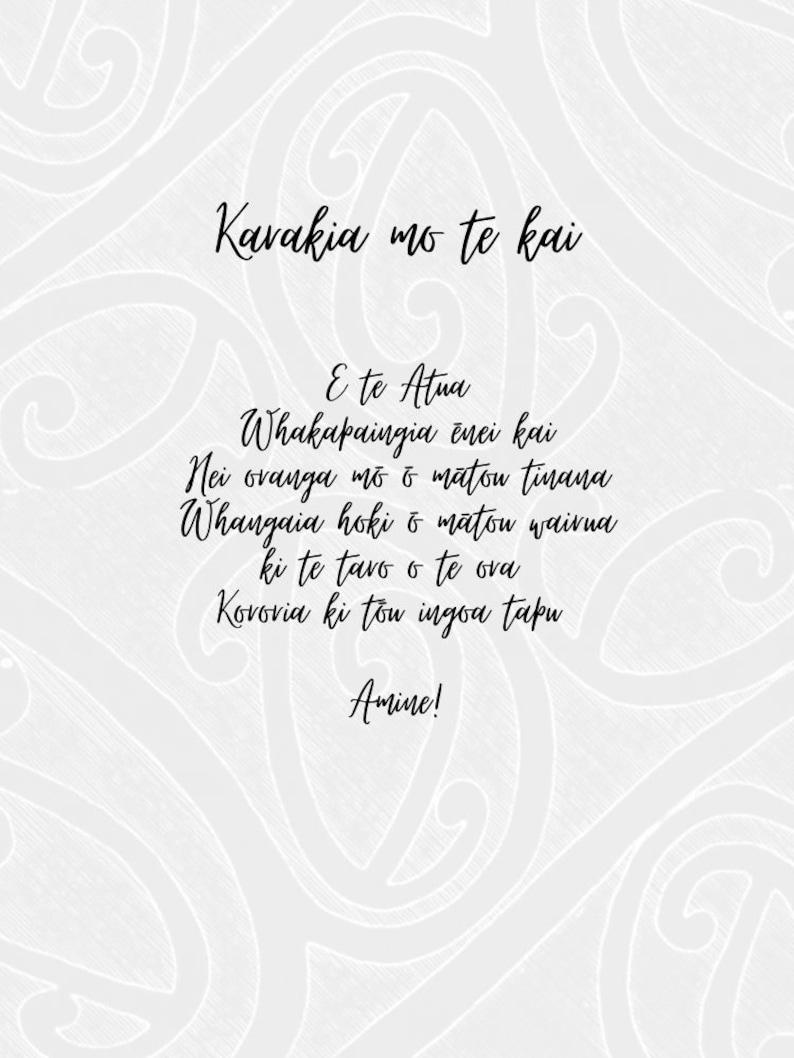 Karakia mo te kai
E te Atua
Whakapaingia ēnei kai
Hei oranga mō ō mātou tinana
Whangaia hoki ō mātou wairua
ki te taro o te ora
Kororia ki tōu ingoa tapu
Amine!